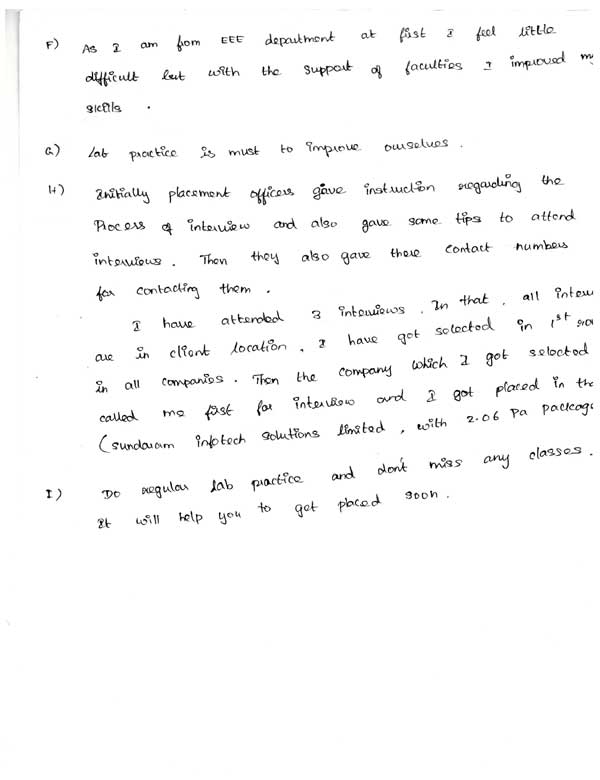 F) As I am from EEE department at first I feel little
difficult but with the support of faculties I improved my
skills .
G) Lab practice is must to improve ourselves .
H) Initially placement officers gave instruction regarding the
Process of interview and also gave some tips to attend
interviews . Then they also gave there contact numbers
for contacting them .
I have attended 3 interviews . In that , all
are in client location . I have got selected in 1st
in all companies . Then the company which I got selected
called me first for interview and I got placed in
(Sundaram infotech solutions limited , with 2.06 Pa package
I) Do regular lab practice and don't miss any classes .
It will help you to get placed soon .